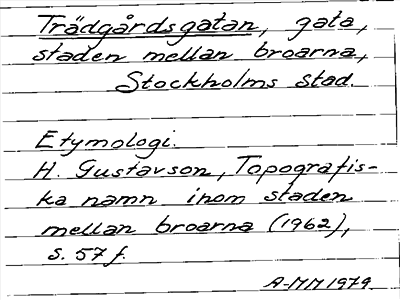 Trädgårdsgatan, gata,
staden mellan broarna,
Stockholms stad.
Etymologi.
H. Gustavson, Topografis-
ka namn inom staden
mellan broarna (1962),
s. 57 f.
A-MM 1979